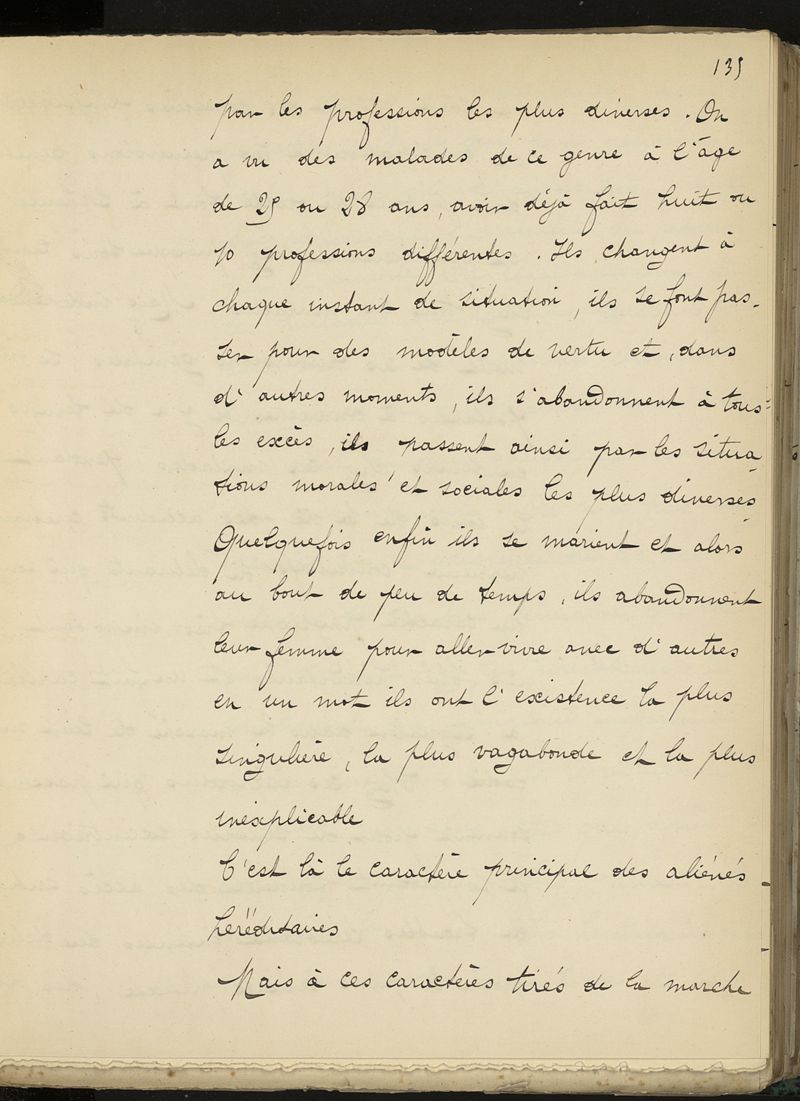 135
par les professions les plus diverses. On
a vu des malades de ce genre à l'âge
de 25 ou 28 ans, avoir déjà fait huit ou
10 professions différentes. Ils changent à
chaque instant de situation, ils se font pas-
ser pour des modèles de vertu et, dans
d'autres moments, ils s'abandonnent à tous
les excès, ils passent ainsi par les situa-
tions morales et sociales les plus diverses
Quelquefois enfin ils se marient et alors
au bout de peu de temps, ils abandonnent
leur femme pour aller vivre avec d'autres
en un mot ils ont l'existence la plus
singulière, la plus vagabonde et la plus
inexplicable
C'est là le caractère principal des aliénés
heréditaires
Mais à ces caractères tirés de la marche